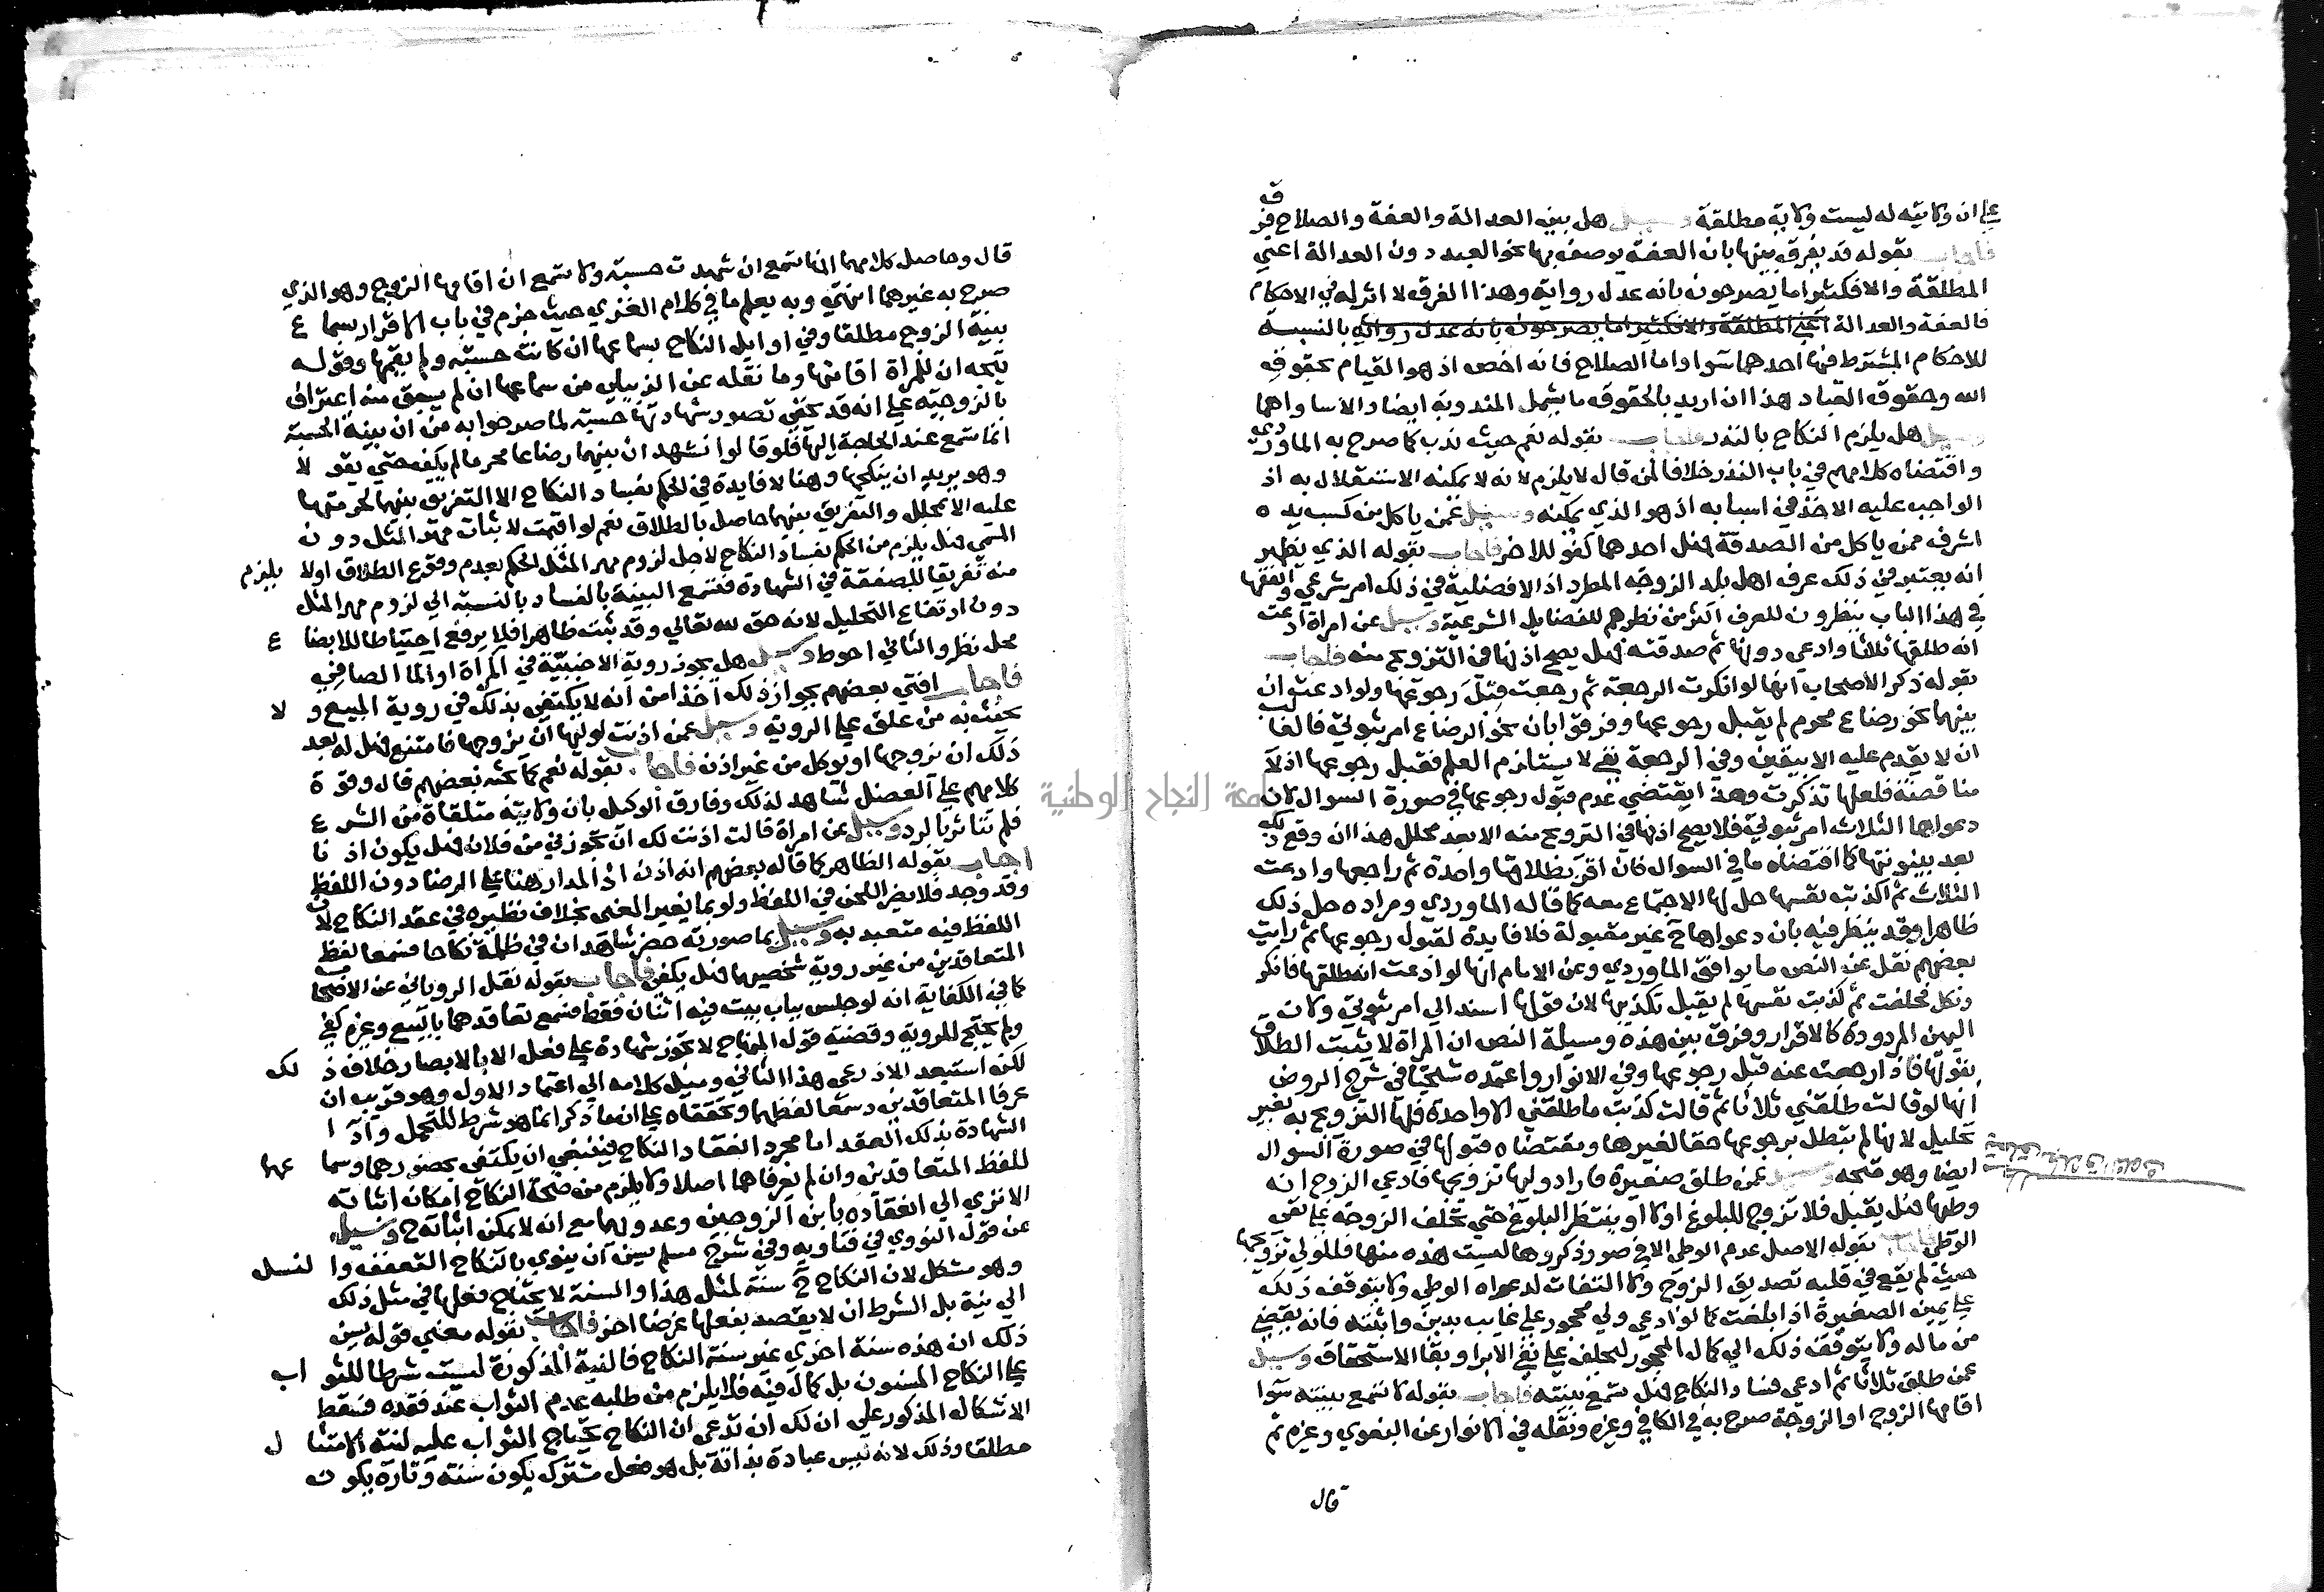 على ان ولايته له ليست ولاية مطلقة وسيل هل بين العدالة والعفة والصلاح فرق
فاجاب بقوله قد يفرق بينها بان العفة يوصف بها نحو العبد دون العدالة اعني
المطلقة والا فكثيرا ما يصرحون بانه عدل رواية وهذا الفرق لا اثر له في الاحكام
فالعفة والعدالة اعني المطلقة والا فكثيرا ما يصرحون بانه عدل رواية بالنسبة
للاحكام المشترط فيها احدهما سوا واما الصلاح فانه اخص اذ هو القيام بحقوق
الله وحقوق العباد هذا ان اريد بالحقوق ما يشمل المندوبة ايضا والا ساواهما
وسيل هل يلزم النكاح بالنذر فاجاب بقوله نعم حيث ندب كما صرح به الماوردي
واقتضاه كلامهم في باب النذر خلافا لمن قال لا يلزم لانه لا يمكنه الاستقلال به اذ
الواجب عليه الاخذ في اسبابه اذ هو الذي يمكنه وسيل عمن ياكل من كسب يده
اشرف ممن ياكل من الصدقة فهل احدهما كفو للاخر فاجاب بقوله الذي يظهر
انه يعتبر في ذلك عرف اهل بلد الزوجة المطرد اذ الافضلية في ذلك امر شرعي والفقها
في هذا الباب ينظرون للعرف اكثر من نظرهم للفضايل الشرعية وسيل عن امراة ادعت
انه طلقها ثلاثا وادعى دونها ثم صدقته فهل يصح اذنها في التزويج منه فاجاب
بقوله ذكر الاصحاب انها لو انكرت الرجعة ثم رجعت قبل رجوعها ولو ادعت ان
بينهما نحو رضاع محرم لم يقبل رجوعها وفرقوا بان نحو الرضاع امر ثبوتي فالغالب
ان لا يقدم عليه الا بيقين وفي الرجعة نفي لا يستلزم العلم فقبل رجوعها اذ لا
مناقضة فلعلها تذكرت وهذا يقتضي عدم قبول رجوعها في صورة السوال لان
دعواها الثلاث امر ثبوتي فلا يصح اذنها في التزويج منه الا بعد محلل هذا ان وقع ذلك
بعد بينونتها كما اقتضاه ما في السوال فان اقر بطلاقها واحدة ثم راجعها وادعت
الثلاث ثم اكذبت نفسها حل لها الاجتماع معه كما قاله الماوردي ومراده حل ذلك
ظاهرا وقد ينظر فيه بان دعواها ح غير مقبولة فلا فايدة لقبول رجوعها ثم رايت
بعضهم نقل عن النص ما يوافق الماوردي وعن الامام انها لو ادعت انه طلقها فانكر
ونكل فحلفت ثم كذبت نفسها لم يقبل تكذيبها لان قولها اسند الى امر ثبوتي ولان
اليمين المردودة كالاقرار وفرق بين هذه ومسيلة النص ان المراة لا يثبت الطلاق
بقولها فاذا رجعت عنه قبل رجوعها وفي الانوار واعتمده شيخنا في شرح الروض
انها لو قالت طلقني ثلاثا ثم قالت كذبت ما طلقني الا واحدة فلها التزويج به بغير
تحليل لانها لم تبطل برجوعها حقا لغيرها ومقتضاه قبولها في صورة السوال
ايضا وهو متجه وسيل عمن طلق صغيرة فاراد وليها تزويجها فادعى الزوج انه
وطيها فهل يقبل فلا تزوج للبلوغ او لا او ينتظر البلوغ حتى تحلف الزوجة على نفي
الوطي فاجاب بقوله الاصل عدم الوطي الا في صور ذكروها ليست هذه منها فللولي تزويجها
حيث لم يقع في قلبه تصديق الزوج ولا التفات لدعواه الوطي ولا يتوقف ذلك
على يمين الصغيرة اذا بلغت كما لو ادعى ولي محجور على غايب بدين واثبته فانه يقبض
من ماله ولا يتوقف ذلك الى كمال المحجور ليحلف على نفي الابرا وبقا الاستحقاق وسيل
عمن طلق ثلاثا ثم ادعى فساد النكاح فهل تسمع بينته فاجاب بقوله لا تسمع بينته سوا
اقامها الزوج او الزوجة صرح به في الكافي وغيره ونقله في الانوار عن البغوي وغيره ثم
قال
قال وحاصل كلامهما انها تسمع ان شهدت حسبة ولا تسمع ان اقامها الزوج وهو الذي
صرح به غيرهما انتهى وبه يعلم ما في كلام الغزي حيث جزم في باب الاقرار بسماع
بينة الزوج مطلقا وفي اوايل النكاح بسماعها ان كانت حسبة ولم يقمها وقوله
يتجه ان للمراة اقامتها وما نقله عن الزبيلي من سماعها ان لم يسبق منه اعتراف
بالزوجية على انه قد يخفى تصور شهادتها حسبة لما صرحوا به من ان بينة الحسبة
انما تسمع عند الحاجة اليها فلو قالوا نشهد ان بينهما رضاعا محرما لم يكف حتى يقولا
وهو يريد ان ينكحها وهنا لا فايدة في الحكم بفساد النكاح الا التفريق بينهما لحرمتها
عليه الا بمحلل والتفريق بينهما حاصل بالطلاق نعم لو اقيمت لاثبات مهر المثل دون
المسمى فهل يلزم من الحكم بفساد النكاح لاجل لزوم مهر المثل الحكم بعدم وقوع الطلاق اولا يلزم
منه تفريقا للصفقة في الشهادة فتسمع البينة بالفساد بالنسبة الى لزوم مهر المثل
دون ارتفاع التحليل لانه حق لله تعالى وقد يثبت ظاهرا فلا يرفع احتياطا للابضاع
محل نظر والثاني احوط وسيل هل يجوز روية الاجنبية في المراة او الما الصافي
فاجاب افتى بعضهم بجواز ذلك اخذا من انه لا يكتفي بذلك في روية المبيع ولا
يحنث به من علق على الروية وسيل عمن اذنت لوليها ان يزوجها فامتنع فهل له بعد
ذلك ان يزوجها او يوكل من غير اذن فاجاب بقوله نعم كما بحثه بعضهم قال وقوة
كلامهم على العضل شاهد لذلك وفارق الوكيل بان ولايته متلقاة من الشرع
فلم تتاثر بالرد وسيل عن امراة قالت اذنت لك ان تجوزني من فلان فهل يكون اذنا
اجاب بقوله الظاهر كما قاله بعضهم انه اذن اذ المدار هنا على الرضا دون اللفظ
وقد وجد فلا يضر اللحن في اللفظ ولو بما يغير المعنى بخلاف نظيره في عقد النكاح لان
اللفظ فيه متعبد به وسيل بما صورته حضر شاهدان في ظلمة نكاحا فسمعا لفظ
المتعاقدين من غير روية شخصيهما فهل يكفي فاجاب بقوله نقل الروياني عن الاصحاب
كما في الكفاية انه لو جلس بباب بيت فيه اثنان فقط فسمع تعاقدهما بالبيع وغيره كفى
ولم يحتج للروية وقضية قول المنهاج لا تجوز شهادة على فعل الا بالابصار خلاف ذلك
لكن استبعد الاذرعي هذا الثاني وميل كلامه الى اعتماد الاول وهو قريب ان
عرفا المتعاقدين وسمعا لفظهما وتحققاه على ان ما ذكر انما هو شرط للتحمل وادا
الشهادة بذلك العقد اما مجرد انعقاد النكاح فينبغي ان يكتفى بحضورهما وسماعهما
للفظ المتعاقدين وان لم يعرفاهما اصلا ولا يلزم من صحة النكاح امكان اثباته
الا ترى الى انعقاده بابن الزوجين وعدوهما مع انه لا يمكن اثباته ح وسيل
عن قول النووي في فتاويه وفي شرح مسلم يسن ان ينوي بالنكاح التعفف والنسل
وهو مشكل لان النكاح ح سنة لمثل هذا والسنة لا يحتاج فعلها في مثل ذلك
الى نية بل الشرط ان لا يقصد بفعلها غرضا اخر فاجاب بقوله معنى قوله يسن
ذلك ان هذه سنة اخرى غير سنة النكاح فالنية المذكورة ليست شرطا للثواب
على النكاح المسنون بل كمال فيه فلا يلزم من طلبه عدم الثواب عند فقده فسقط
الاشكال المذكور على ان لك ان تدعي ان النكاح يحتاج الثواب عليه لنية الامتثال
مطلقا وذلك لانه ليس عبادة بذاته بل هو فعل مشترك يكون سنة وتارة يكون
جامعة النجاح الوطنية